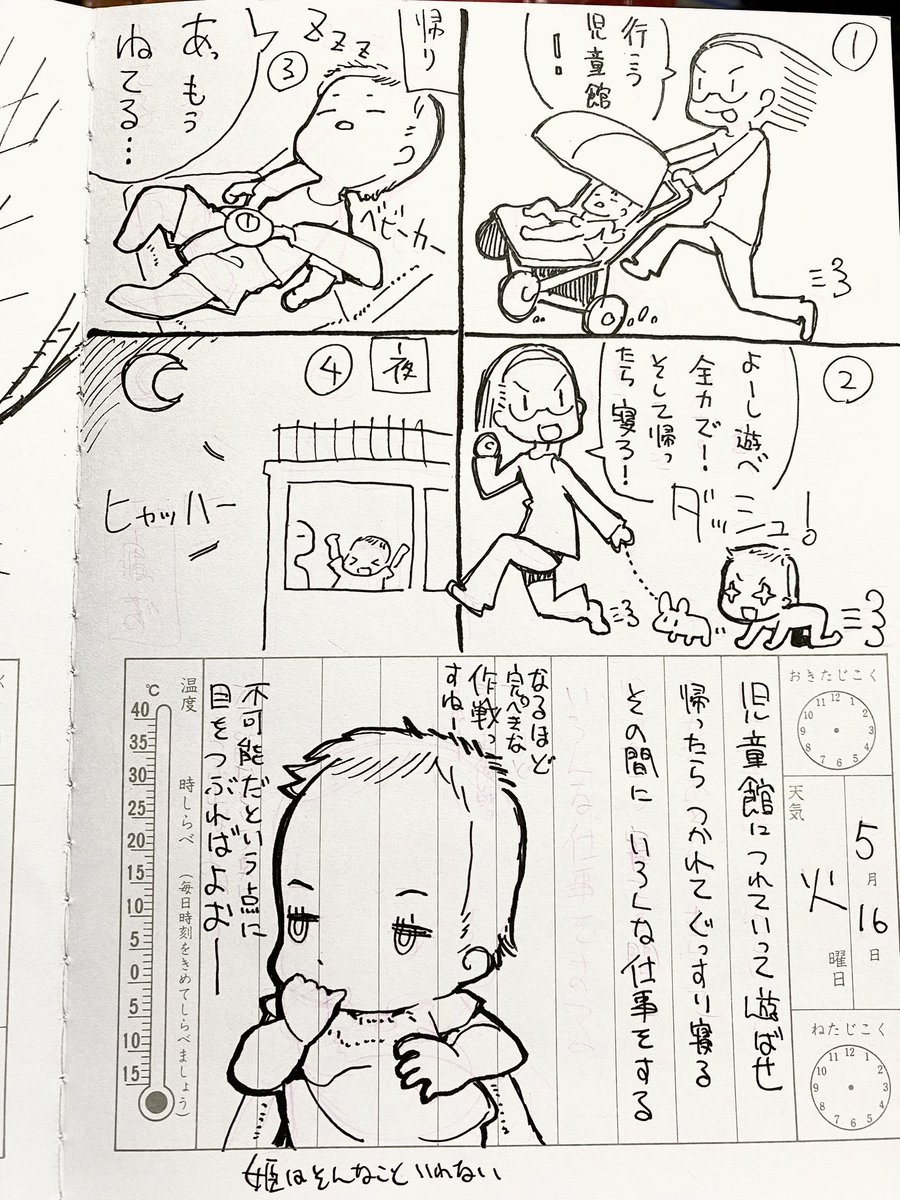 ①
行こう
児童館
!
②
よーし遊べ
全力で!
そして帰っ
たら寝ろ!
ダッシュ!
帰り
ZZZ
③
あっもう
ねてる…
ベビーカー
夜
④
ヒャッハー
おきたじこく
天気
5月16日
火曜日
ねたじこく
児童館につれていって遊ばせ
帰ったらつかれてぐっすり寝る
その間にいろんな仕事をする
なるほど
完ぺきな
作戦っ
すねー
不可能だという点に
目をつぶればよおー
温度 時しらべ (毎日時刻をきめてしらべましょう)
℃
40
35
30
25
20
15
10
5
0
5
10
15
姫はそんなこといわない